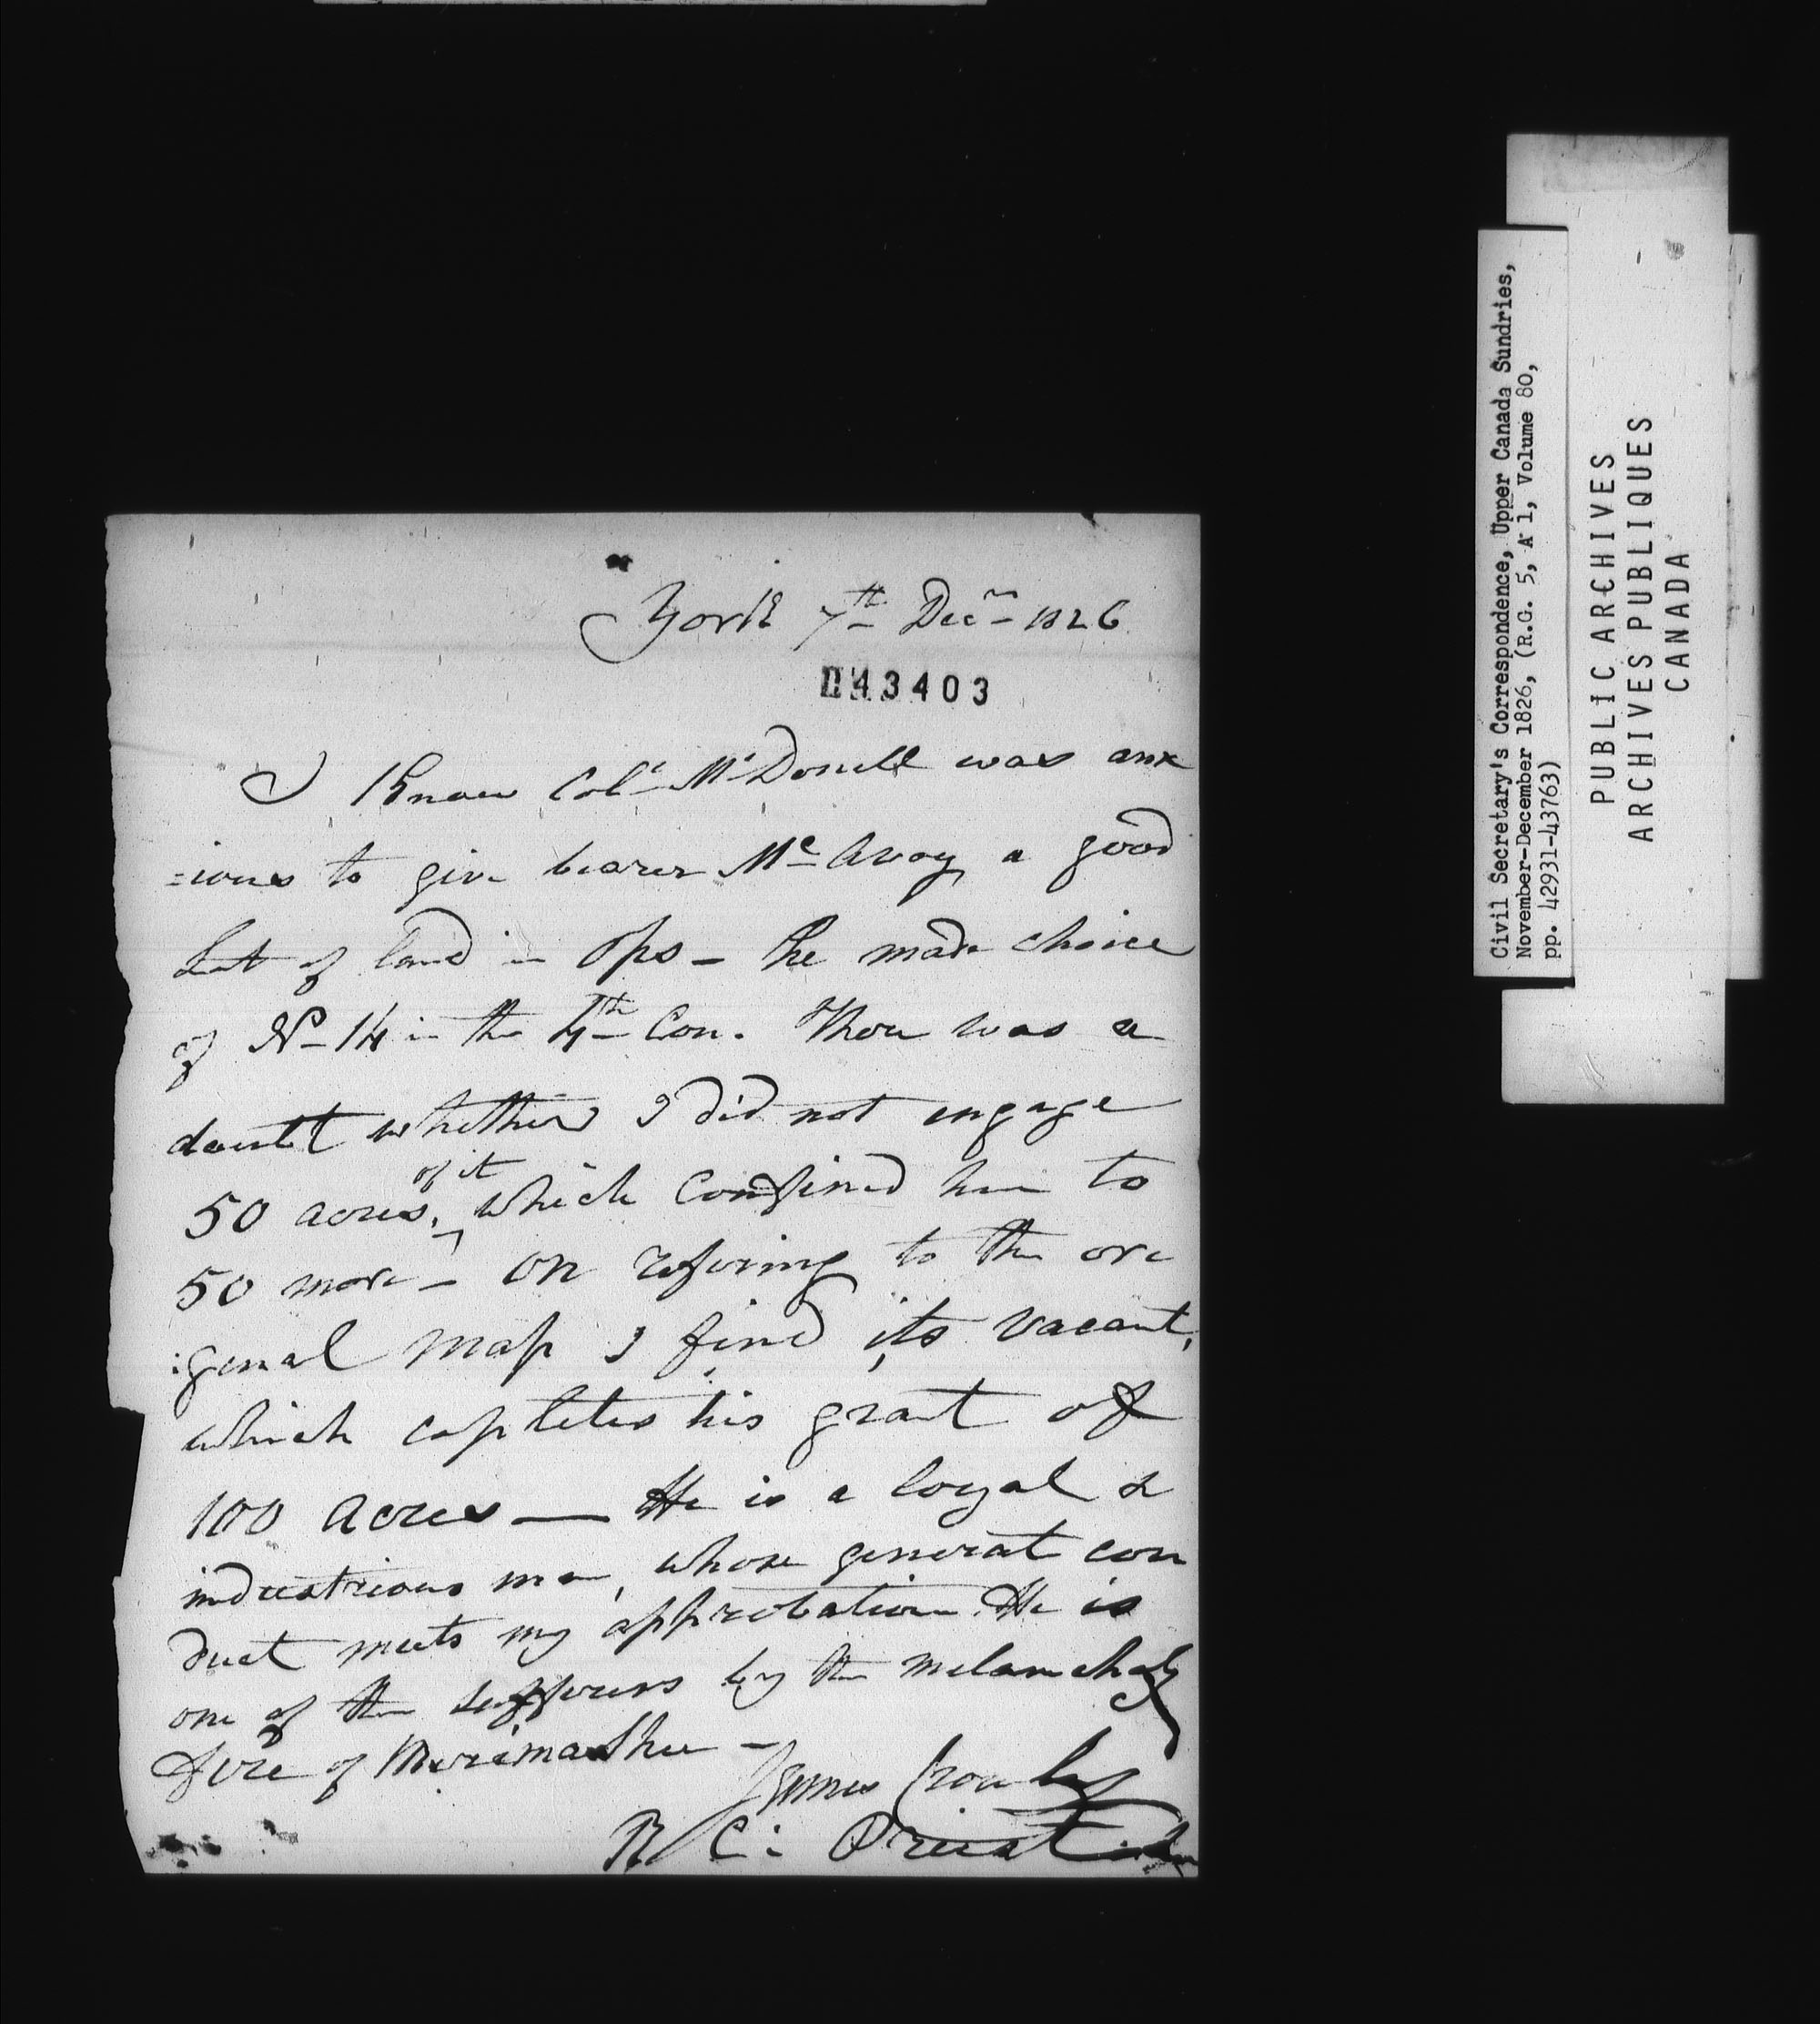 York 7th Decr 1826
043403
I Know Coll McDonell was anx
=ious to give bearer Mc Avoy a good
Lot of land in Ops - he made choice
of No 14 in the 4th Con. There was a
doubt whether I did not engage
50 acres, of it which Confined him to
50 more - On refering to the ori
:ginal map I find its vacant,
which copletes his grant of
100 acres — He is a loyal &
industrious man, whose general con
duct meets my approbation. He is
one of the sufferers by the melancholy
fire of Merimashee -
James Crowley
R C: Priest
Civil Secretary's Correspondence, Upper Canada Sundries,
November-December 1826, (R.G. 5, A 1, Volume 80,
pp. 42931-43763)
PUBLIC ARCHIVES
ARCHIVES PUBLIQUES
CANADA